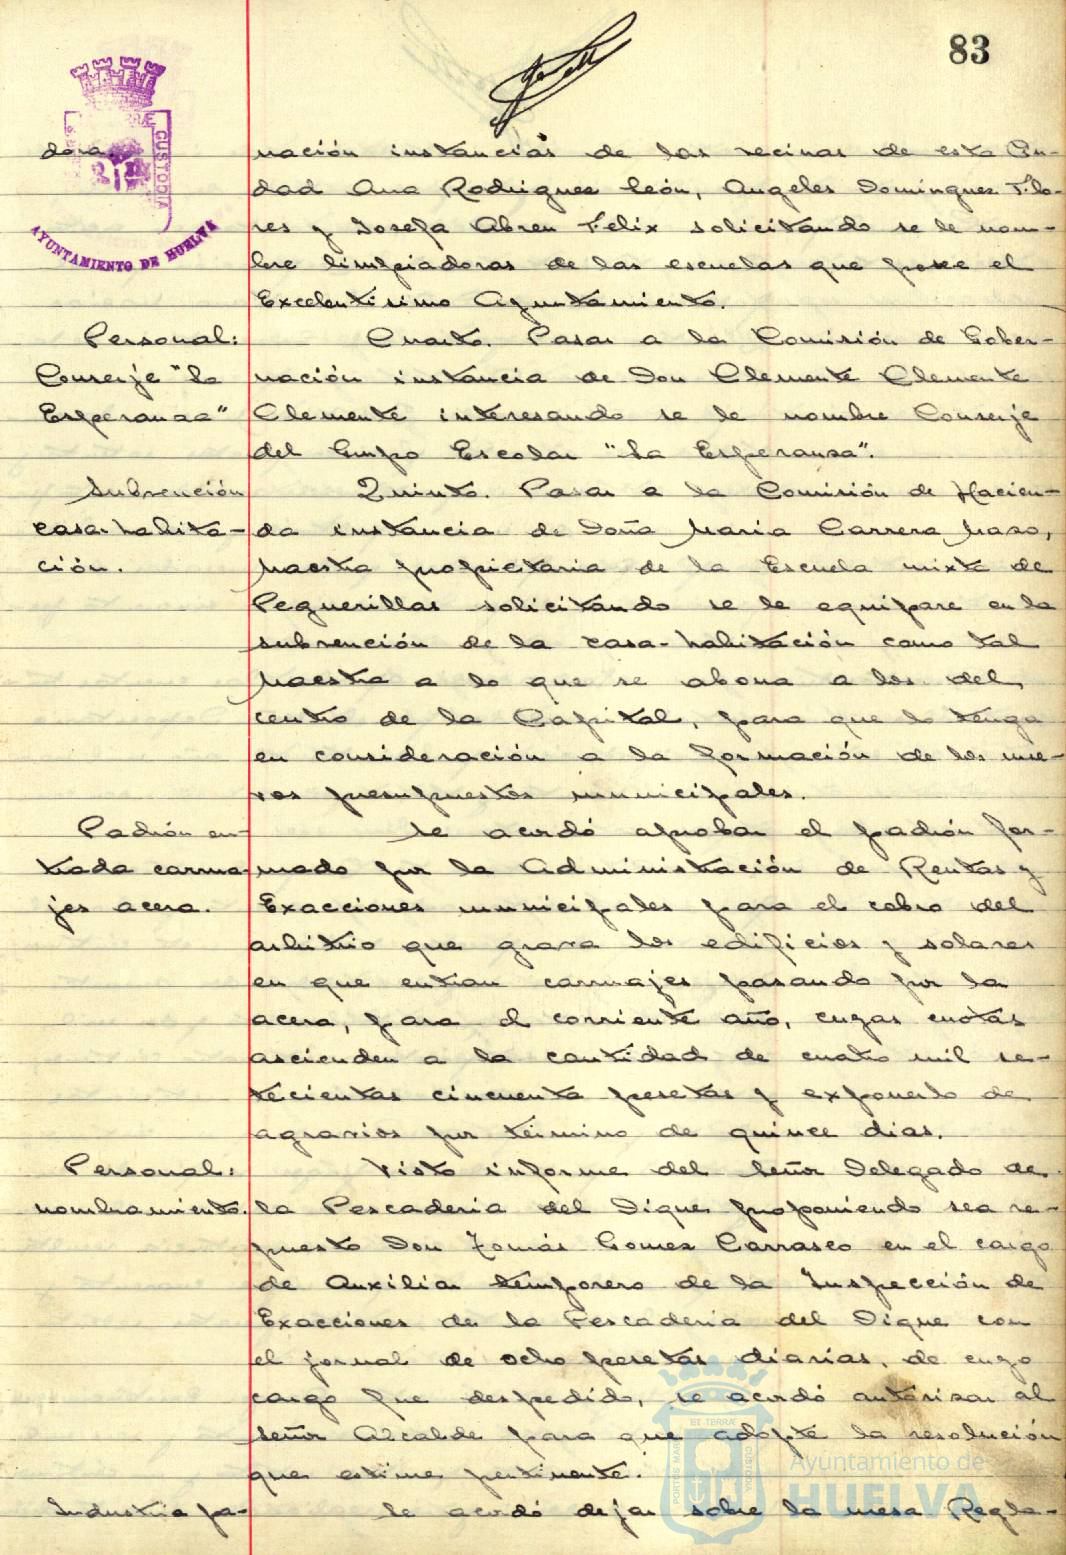 83
dora.
nación instancias de las vecinas de esta Ciu-
dad Ana Rodriguez León, Angeles Dominguez Flo-
res y Josefa Abreu Felix solicitando se le nom-
bre limpiadoras de las escuelas que posee el
Excelentisimo Ayuntamiento.
Personal:
Conserje "La
Esperanza"
Cuarto. Pasar a la Comisión de Gober-
nación instancia de Don Clemente Clemente
Clemente interesando se le nombre Conserje
del Grupo Escolar "La Esperanza".
Subvención
casa-habita-
ción.
Quinto. Pasar a la Comisión de Hacien-
da instancia de Doña Maria Carrera
Maestra propietaria de la Escuela mixta de
Peguerillas solicitando se le equipare en la
subvención de la casa-habitación como tal
Maestra a lo que se abona a los del
centro de la Capital, para que lo tenga
en consideración a la formación de los nue-
vos presupuestos municipales.
Padrón en-
trada carrua
jes acera.
Se acordó aprobar el padrón for-
mado por la Administración de Rentas y
Exacciones municipales para el cobro del
arbitrio que grava los edificios y solares
en que entran carruajes pasando por la
acera, para el corriente año, cuyas cuotas
ascienden a la cantidad de cuatro mil se-
tecientas cincuenta pesetas y exponerlo de
agravios por término de quince dias.
Personal:
nombramiento.
Visto informe del Señor Delegado de
la Pescaderia del Dique proponiendo sea re-
puesto Don Tomás Gomez Carrasco en el cargo
de Auxiliar temporero de la Inspección de
Exacciones de la Pescaderia del Dique con
el jornal de ocho pesetas diarias, de cuyo
cargo fue despedido, se acordó autorizar al
Señor Alcalde para que adopte la resolución
que estime pertinente.
Industria pa-
Se acordó dejar sobre la mesa Regla-
CUSTODIA
AYUNTAMIENTO DE HUELVA
Ayuntamiento de
HUELVA